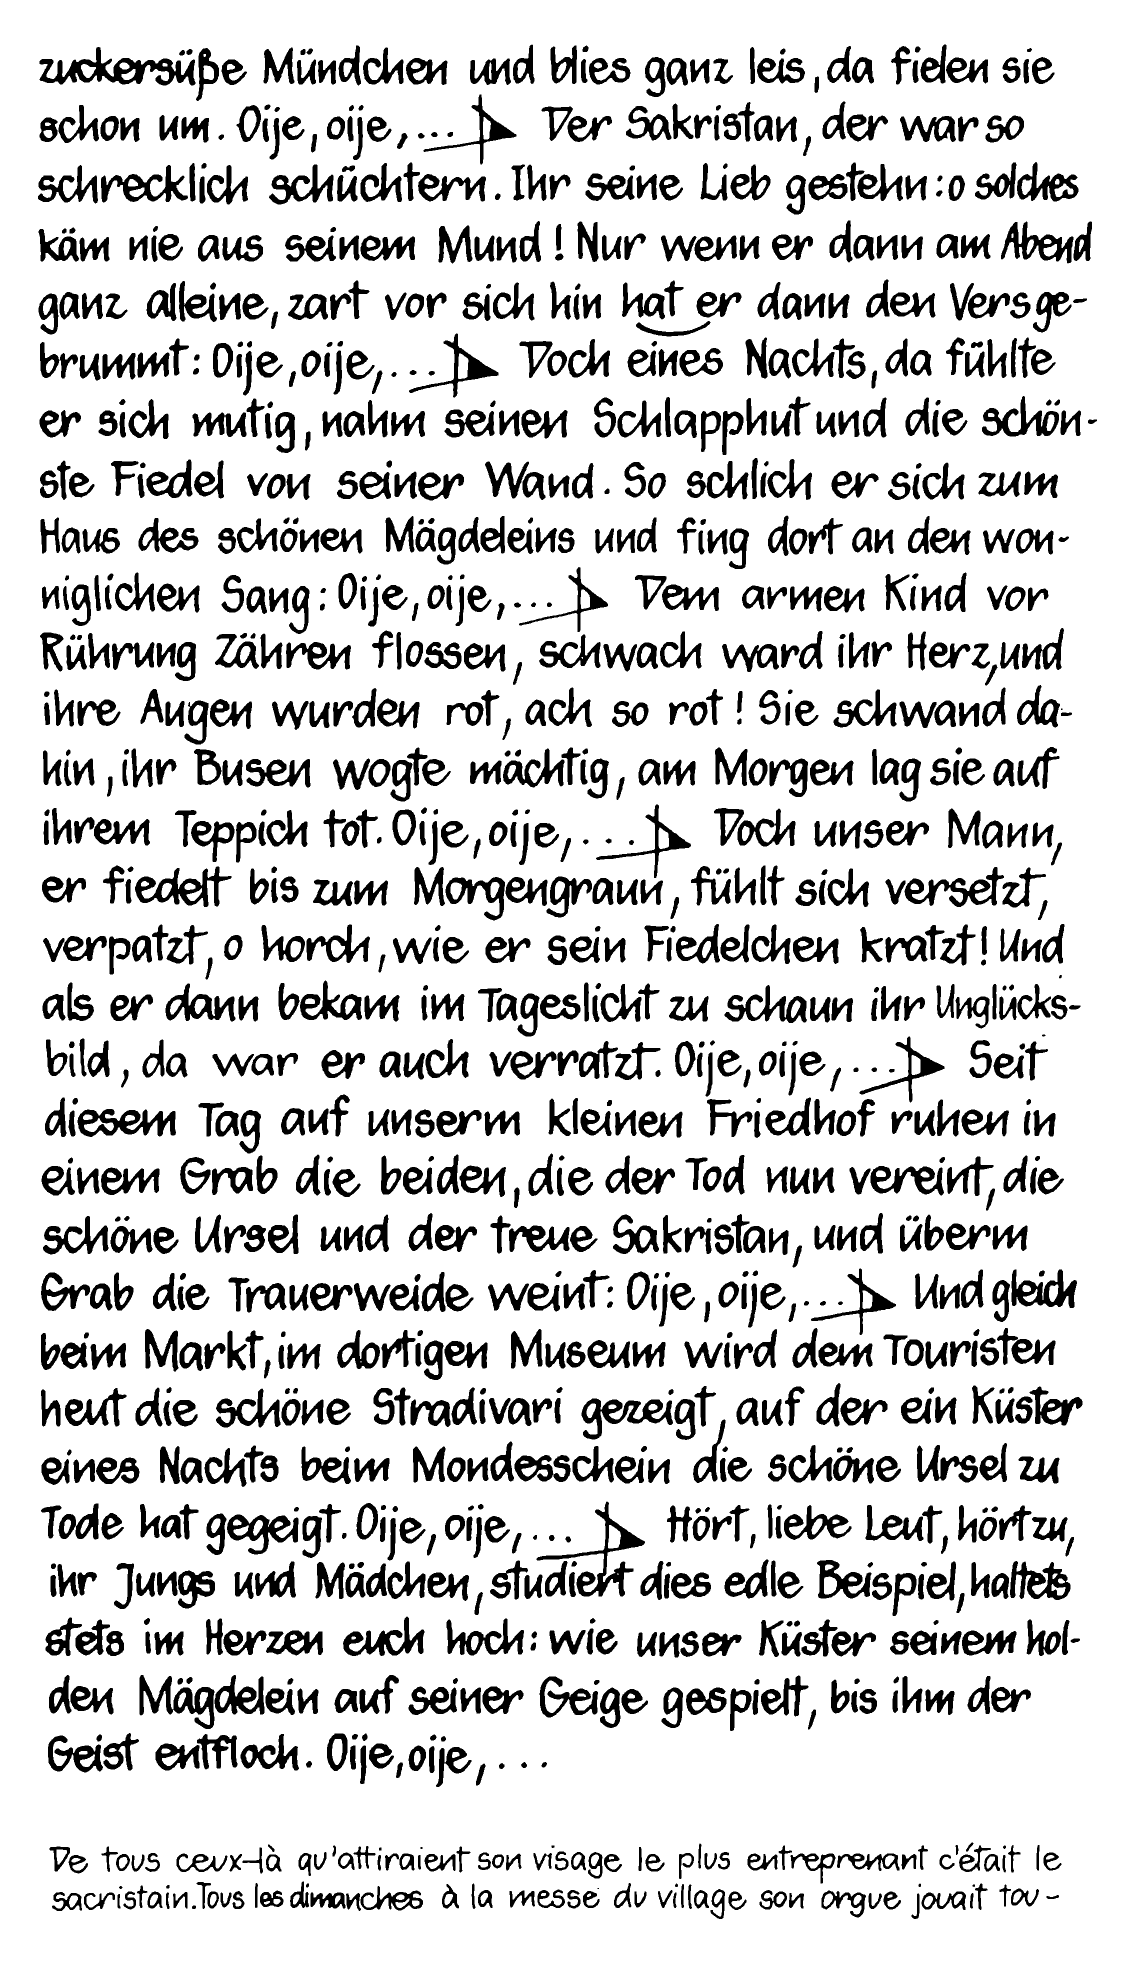 zuckersüße Mündchen und blies ganz leis, da fielen sie
schon um. Oije, oije, ... Der Sakristan, der war so
schrecklich schüchtern. Ihr seine Lieb gestehn: o solches
käm nie aus seinem Mund! Nur wenn er dann am Abend
ganz alleine, zart vor sich hin hat er dann den Vers ge-
brummt: Oije, oije, ... Doch eines Nachts, da fühlte
er sich mutig, nahm seinen Schlapphut und die schön-
ste Fiedel von seiner Wand. So schlich er sich zum
Haus des schönen Mägdeleins und fing dort an den won-
niglichen Sang: Oije, oije, ... Dem armen Kind vor
Rührung Zähren flossen, schwach ward ihr Herz, und
ihre Augen wurden rot, ach so rot! Sie schwand da-
hin, ihr Busen wogte mächtig, am Morgen lag sie auf
ihrem Teppich tot. Oije, oije, ... Doch unser Mann,
er fiedelt bis zum Morgengraun, fühlt sich versetzt,
verpatzt, o horch, wie er sein Fiedelchen kratzt! Und
als er dann bekam im Tageslicht zu schaun ihr Unglücks-
bild, da war er auch verratzt. Oije, oije, ... Seit
diesem Tag auf unserm kleinen Friedhof ruhen in
einem Grab die beiden, die der Tod nun vereint, die
schöne Ursel und der treue Sakristan, und überm
Grab die Trauerweide weint: Oije, oije, ... Und gleich
beim Markt, im dortigen Museum wird dem Touristen
heut die schöne Stradivari gezeigt, auf der ein Küster
eines Nachts beim Mondesschein die schöne Ursel zu
Tode hat gegeigt. Oije, oije, ... Hört, liebe Leut, hört zu,
ihr Jungs und Mädchen, studiert dies edle Beispiel, haltets
stets im Herzen euch hoch: wie unser Küster seinem hol-
den Mägdelein auf seiner Geige gespielt, bis ihm der
Geist entfloch. Oije, oije, ...
De tous ceux-là qu'attiraient son visage le plus entreprenant c'était le
sacristain. Tous les dimanches à la messe du village son orgue jouait tou-